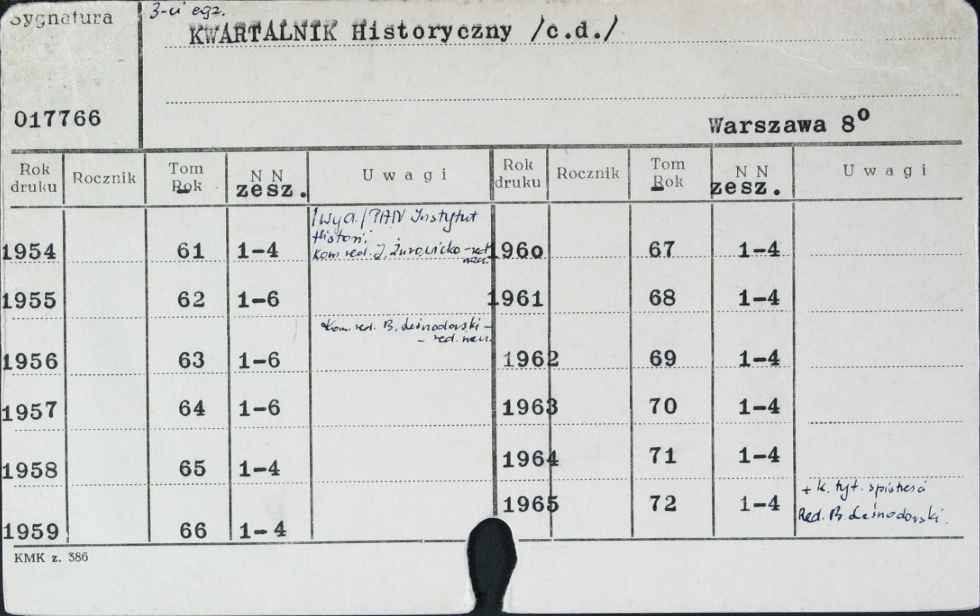 Sygnatura
3-ci egz.
KWARTALNIK Historyczny /c.d./
017766
Warszawa 8°
Rok druku Rocznik Tom Rok N N zesz. Uwagi Rok druku Rocznik Tom Rok N N zesz. Uwagi
/Wyd./ PAN Instytut
Histori.
Kom. red. J. Żurawicka - red.
nau.
1954 61 1-4 1960 67 1-4
1955 62 1-6 1961 68 1-4
Kom. red. B. Leśnodorski -
- red. nau.
1956 63 1-6 1962 69 1-4
1957 64 1-6 1963 70 1-4
1958 65 1-4 1964 71 1-4
+ k. tyt. spis treści
1959 66 1-4 1965 72 1-4 Red. B. Leśnodorski.
KMK z. 386